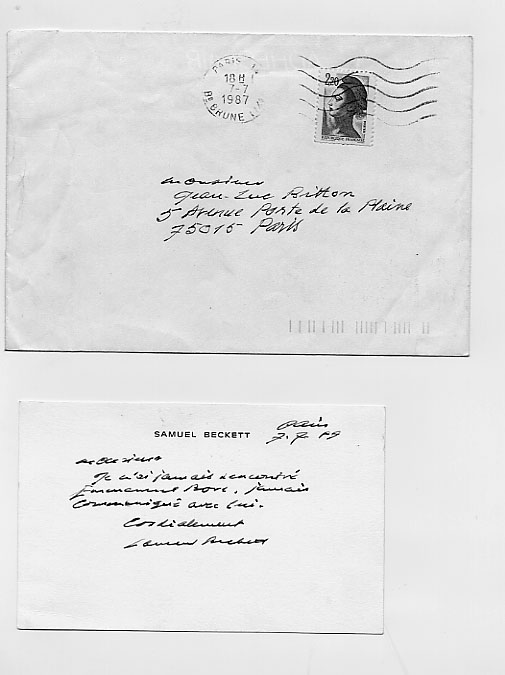 PARIS
18 H
7-7
1987
Bd BRUNE
2,20
REPUBLIQUE FRANÇAISE
Monsieur
Jean-Luc Bitton
5 Avenue Porte de la Plaine
75015 Paris
SAMUEL BECKETT
Paris
Monsieur
Je n'ai jamais rencontré
Emmanuel Bove, jamais
communiqué avec lui.
Cordialement
Samuel Beckett